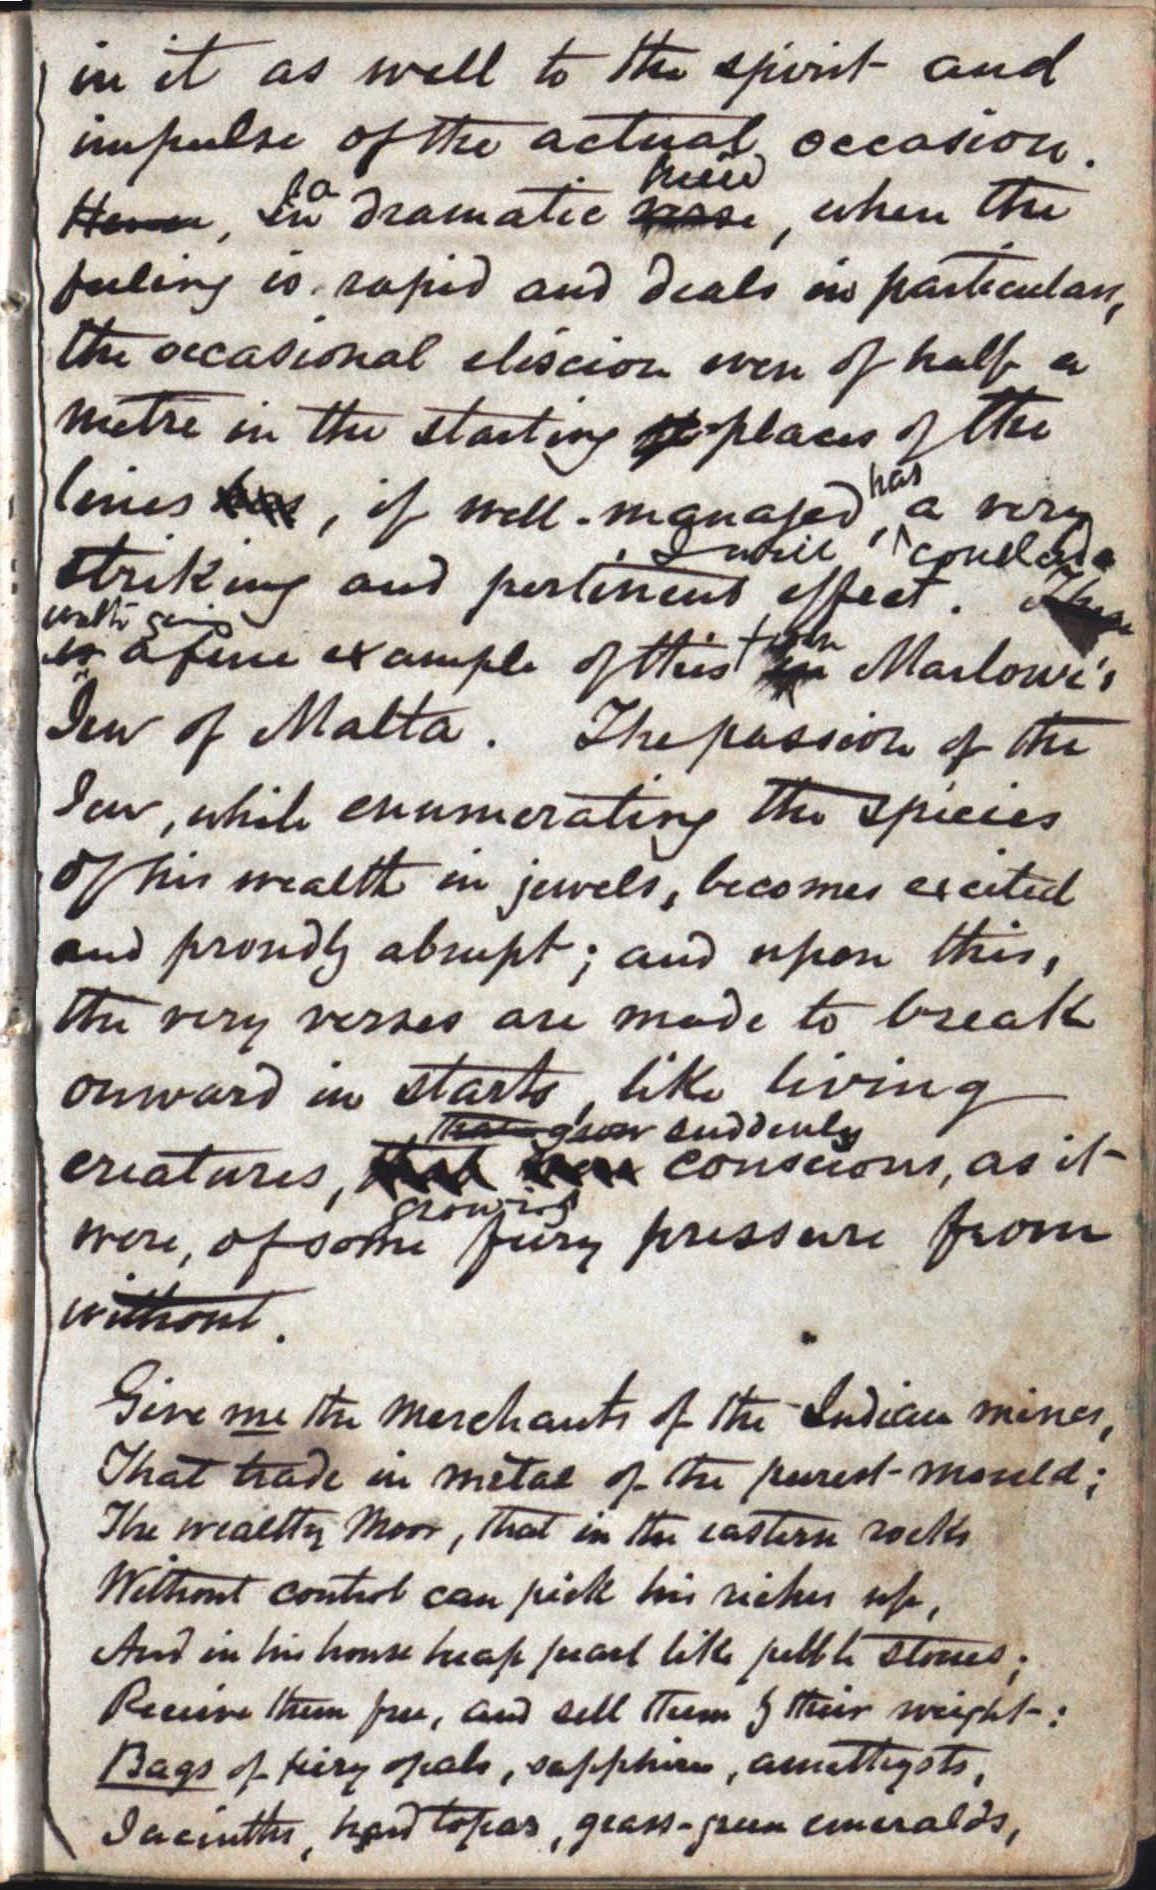 in it as well to the spirit and
impulse of the actual occasion.
Hence, In a dramatic piece, when the
feeling is rapid and deals in particulars,
the occasional eliscion even of half a
metre in the starting places of the
lines has, if well-managed, has a very
striking and pertinent effect. I will conclude
with giving
is a fine example of this from Marlowe's
Jew of Malta. The passion of the
Jew, while enumerating the species
of his wealth in jewels, becomes excited
and proudly abrupt; and upon this,
the very verses are made to break
onward in starts, like living
that grow suddenly
creatures, that were conscious, as it
growing
were, of some fiery pressure from
without.
Give me the merchants of the Indian mines,
That trade in metal of the purest mould;
The wealthy Moor, that in the eastern rocks
Without control can pick his riches up,
And in his house heap pearl like pebble stones;
Receive them free, and sell them by their weight:
Bags of fiery opals, sapphires, amethysts,
Jacinths, hard topas, grass-green emeralds,